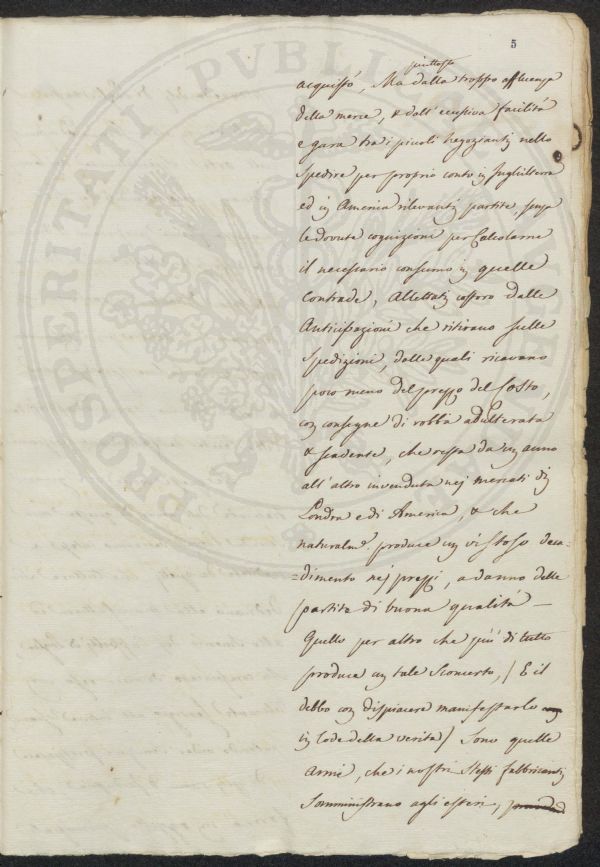 5
piuttosto
acquisto, Ma dalla troppo affluenza
della merce, & dall'eccessiva facilità
e gara tra i piccoli Negozianti nello
spedire per proprio conto in Inghilterra
ed in America rilevanti partite, senza
le dovute cognizioni per Calcolarne
il necessario consumo in quelle
Contrade, Allettati costoro dalle
Anticipazioni che ritirano sulle
Spedizioni, dalle quali ricavano
poco meno del prezzo del Costo,
con consegne di robba adulterata
& scadente, che resta da un anno
all'altro invenduta nei mercati di
Londra e di America, & che
naturalm.e produce un vistoso deca-
-dimento nei prezzi, a danno delle
partite di buona qualità —
Quello per altro che più di tutto
produce un tale Sconcerto, / E il
debbo con dispiacere manifestarlo
in lode della verità / Sono quelle
Armi, che i nostri Stessi fabbricanti
Somministrano agli esteri,
PROSPERITATI PVBLICAE